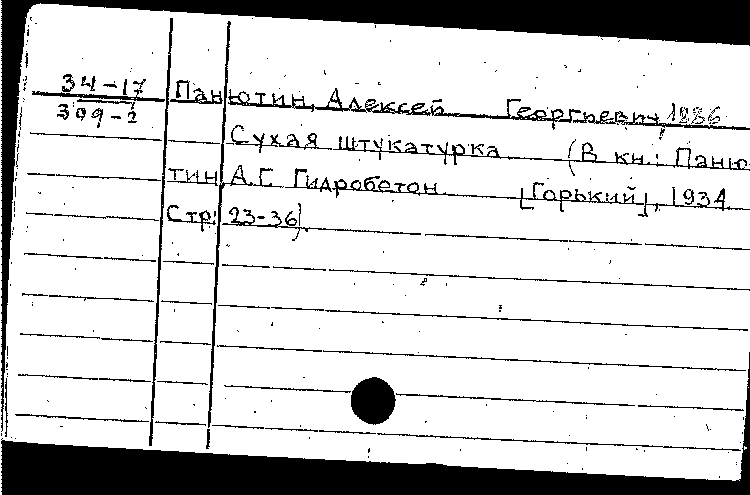 34-17
Панютин, Алексей Георгиевич, 1886
399-2
Сухая штукатурка (В кн.: Паню-
тин, А.Г. Гидробетон. [Горький], 1934.
Стр. 23-36).